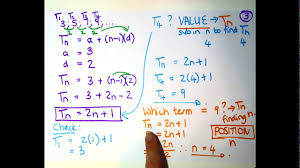 T₁ T₂ T₃ T₄
3, 5, 7, 9, ...
2 2 2
Tn = a + (n-1)(d)
a = 3
d = 2
Tn = 3 + (n-1)(2)
Tn = 3 + 2n - 2
Tn = 2n + 1
Check:
T₁ = 2(1) + 1
= 3
T₄ ? VALUE → Tn
sub in n to find Tn
4 4
Tn = 2n + 1
T₄ = 2(4) + 1
T₄ = 9
③
Which term = 9 ? → Tn
finding n.
Tn = 2n + 1
9 = 2n + 1
POSITION
n
= 2n ∴ n = 4